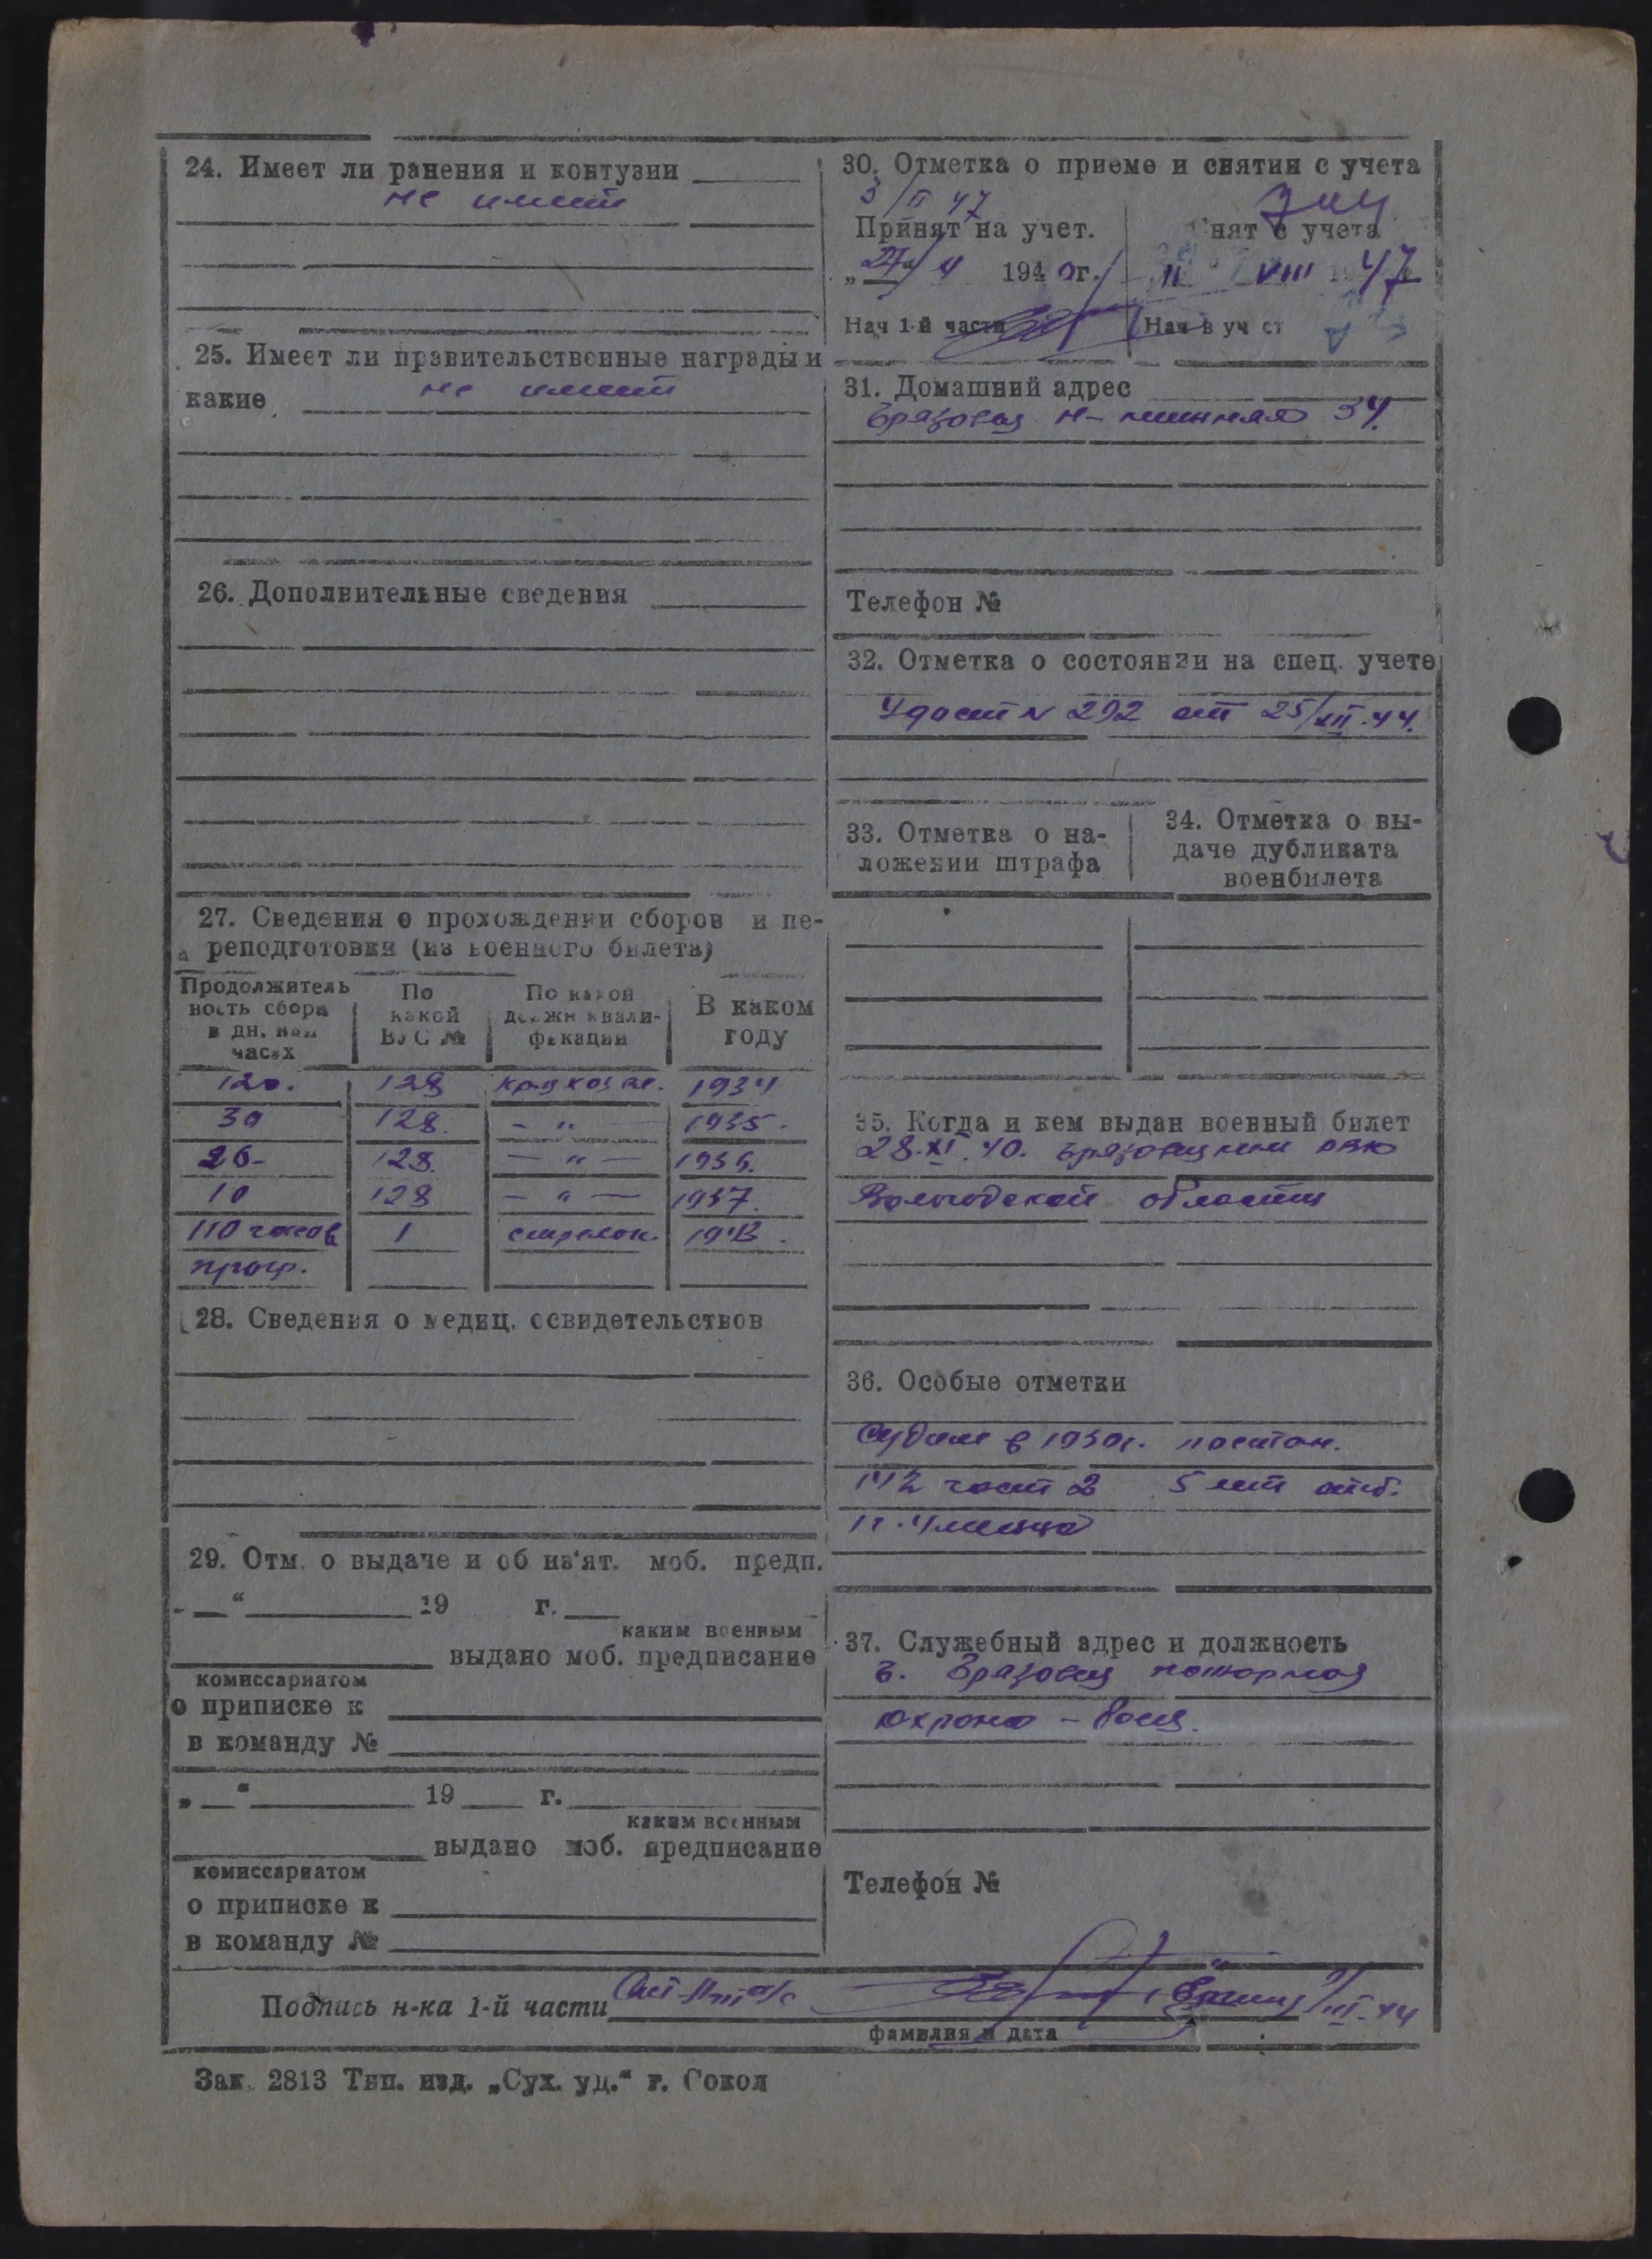 24. Имеет ли ранения и контузии
не имеет
25. Имеет ли правительственные награды и
какие не имеет
26. Дополнительные сведения
27. Сведения о прохождении сборов и пе-
реподготовки (из военного билета)
Продолжитель
ность сбора
в дн. или
часах
По
какой
ВУС №
По какой
должн квали-
фикации
В каком
году
120. 128 1934
30 128. - " - 1935.
26- 128. - " - 1936.
10 128 - " - 1937.
110 часов 1 стрелок. 1943.
прогр.
28. Сведения о медиц. освидетельствов
29. Отм. о выдаче и об из'ят. моб. предп.
" 19 г.
каким военным
выдано моб. предписание
комиссариатом
о приписке к
в команду №
„ " 19 г.
каким военным
выдано моб. предписание
комиссариатом
о приписке к
в команду №
30. Отметка о приеме и снятии с учета
3/II 47
Принят на учет.
194 г.
Нач 1-й части
Снят с учета
11 VIII 1947
Нач в уч ст
31. Домашний адрес
Грязовец 34.
Телефон №
32. Отметка о состоянии на спец. учете
Удост N 292 от 25/XII.44.
33. Отметка о на-
ложении штрафа
34. Отметка о вы-
даче дубликата
военбилета
35. Когда и кем выдан военный билет
28.XI.40. Грязовецким РВК
Вологодской области
36. Особые отметки
Судим в 1930г. по статье.
142 част 2 5 лет отб.
37. Служебный адрес и должность
г. Грязовец пожарная
охрана - боец.
Телефон №
Подпись н-ка 1-й части
фамилия и дата
Зак. 2813 Тип. изд. „Сух. уд." г. Сокол